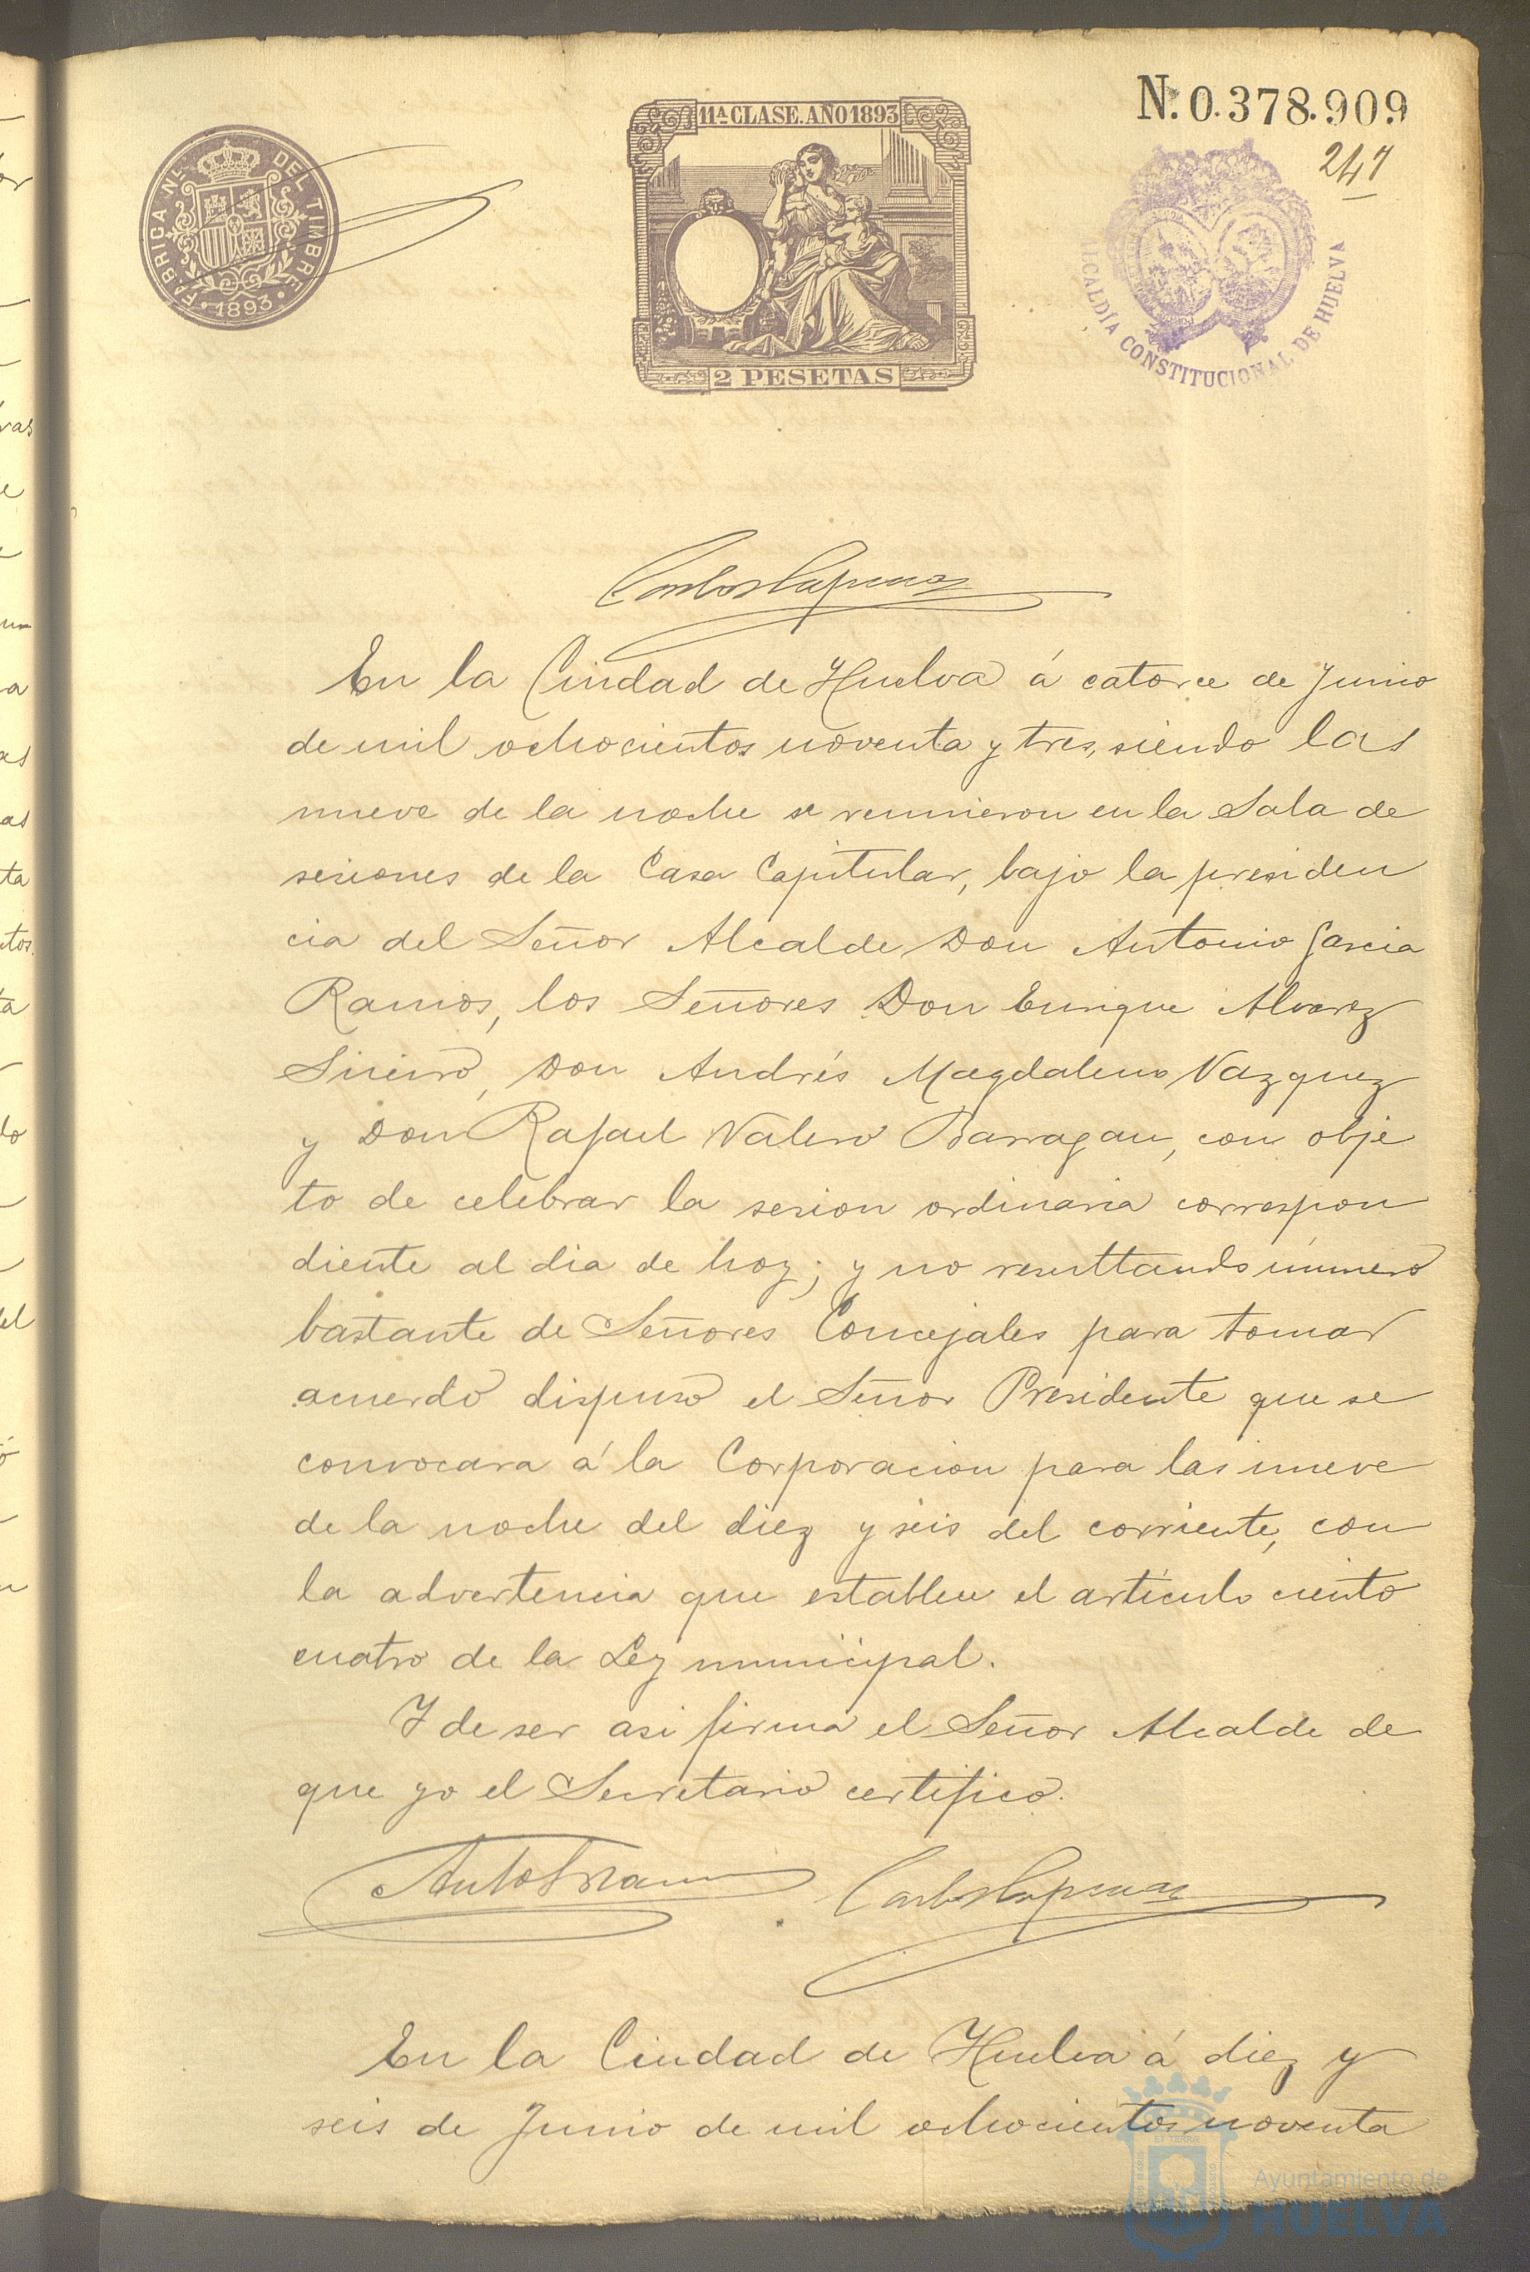 N.º 0.378.909
247
11ª CLASE. AÑO 1893
FABRICA NL. DEL TIMBRE
1893
2 PESETAS
ALCALDÍA CONSTITUCIONAL DE HUELVA
En la Ciudad de Huelva á catorce de Junio
de mil ochocientos noventa y tres, siendo las
nueve de la noche se reunieron en la Sala de
sesiones de la Casa Capitular, bajo la presiden
cia del Señor Alcalde Don Antonio Garcia
Ramos, los Señores Don Enrique Alvarez
Sineiro, Don Andrés Magdaleno Vazquez
y Don Rafael Valero Barragan, con obje
to de celebrar la sesion ordinaria correspon
diente al dia de hoy; y no resultando número
bastante de Señores Concejales para tomar
acuerdo dispuso el Señor Presidente que se
convocara á la Corporacion para las nueve
de la noche del diez y seis del corriente, con
la advertencia que establece el artículo ciento
cuatro de la Ley municipal.
Y de ser asi firma el Señor Alcalde de
que yo el Secretario certifico.
En la Ciudad de Huelva á diez y
seis de Junio de mil ochocientos noventa
Ayuntamiento de
HUELVA